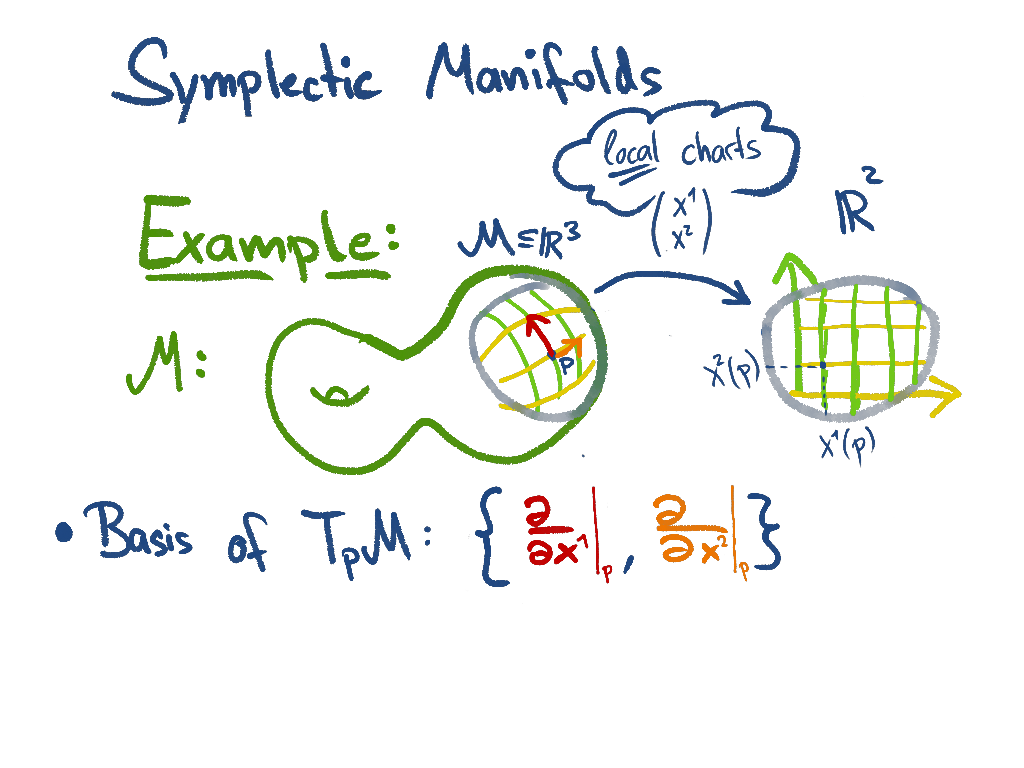 Symplectic Manifolds
local charts
(x¹
x²)
ℝ²
Example:
M ⊆ ℝ³
M:
p
x²(p)
x¹(p)
• Basis of TₚM: { ∂/∂x¹|ₚ , ∂/∂x²|ₚ }